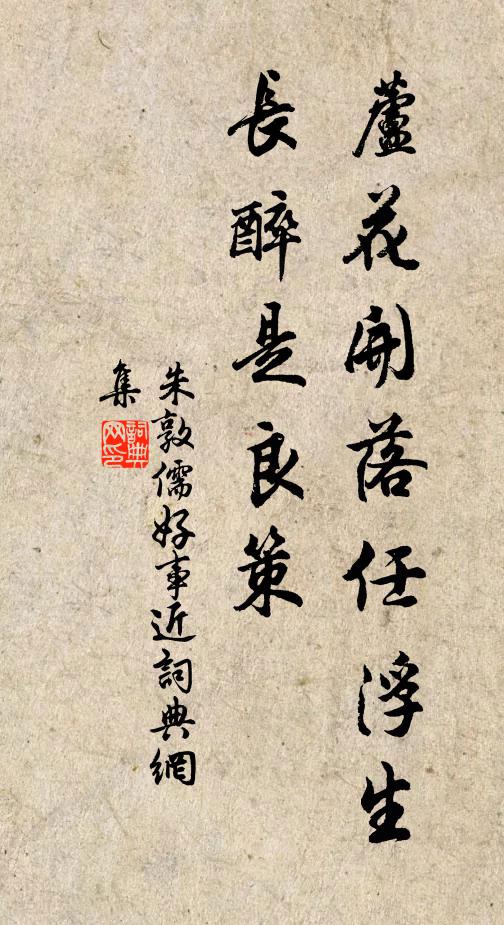 蘆花開落任浮生
長醉是良策
朱敦儒好事近詞典網
集
詞典网印